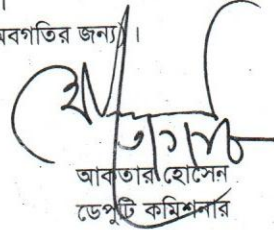 অবগতির জন্য)।
আকতার হোসেন
ডেপুটি কমিশনার